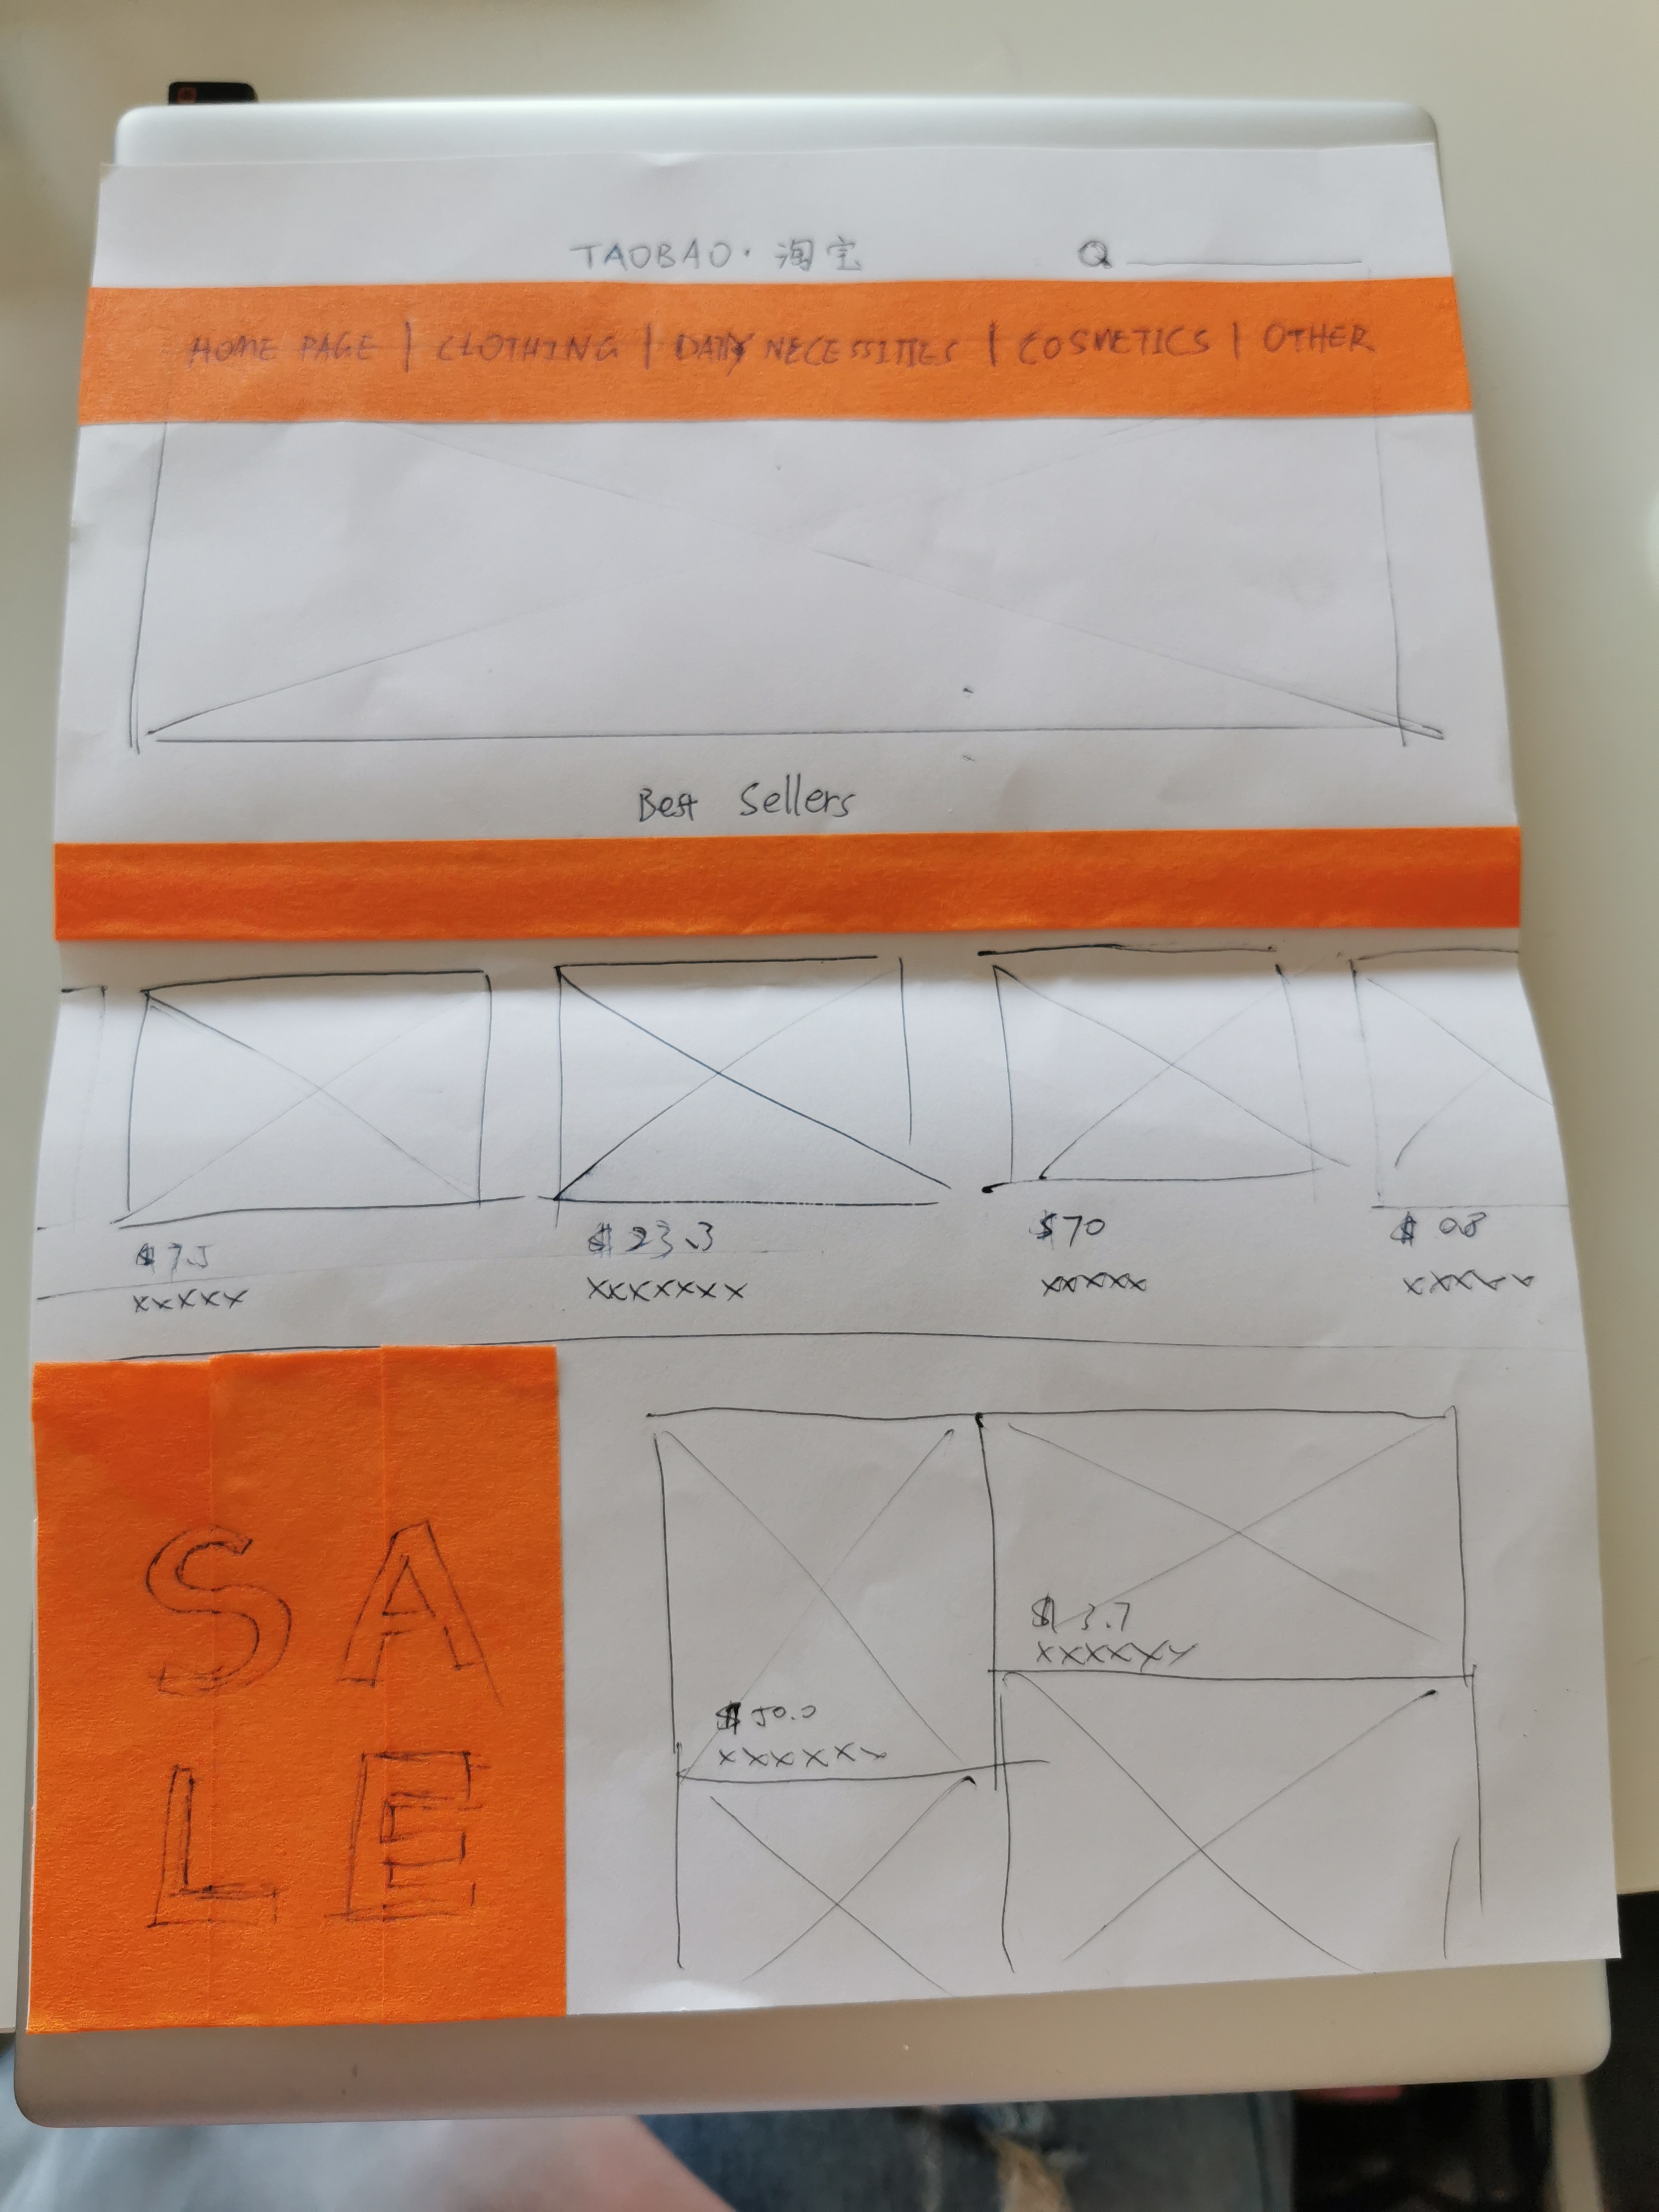 TAOBAO · 淘宝 Q
HOME PAGE | CLOTHING | DAILY NECESSITIES | COSMETICS | OTHER
Best Sellers
$ 7.5 $ 23.3 $70 $ 0.8
xxxxx xxxxxxx xxxxx xxxxxx
SA
LE
$ 3.7
xxxxxxx
$ 50.0
xxxxxxx